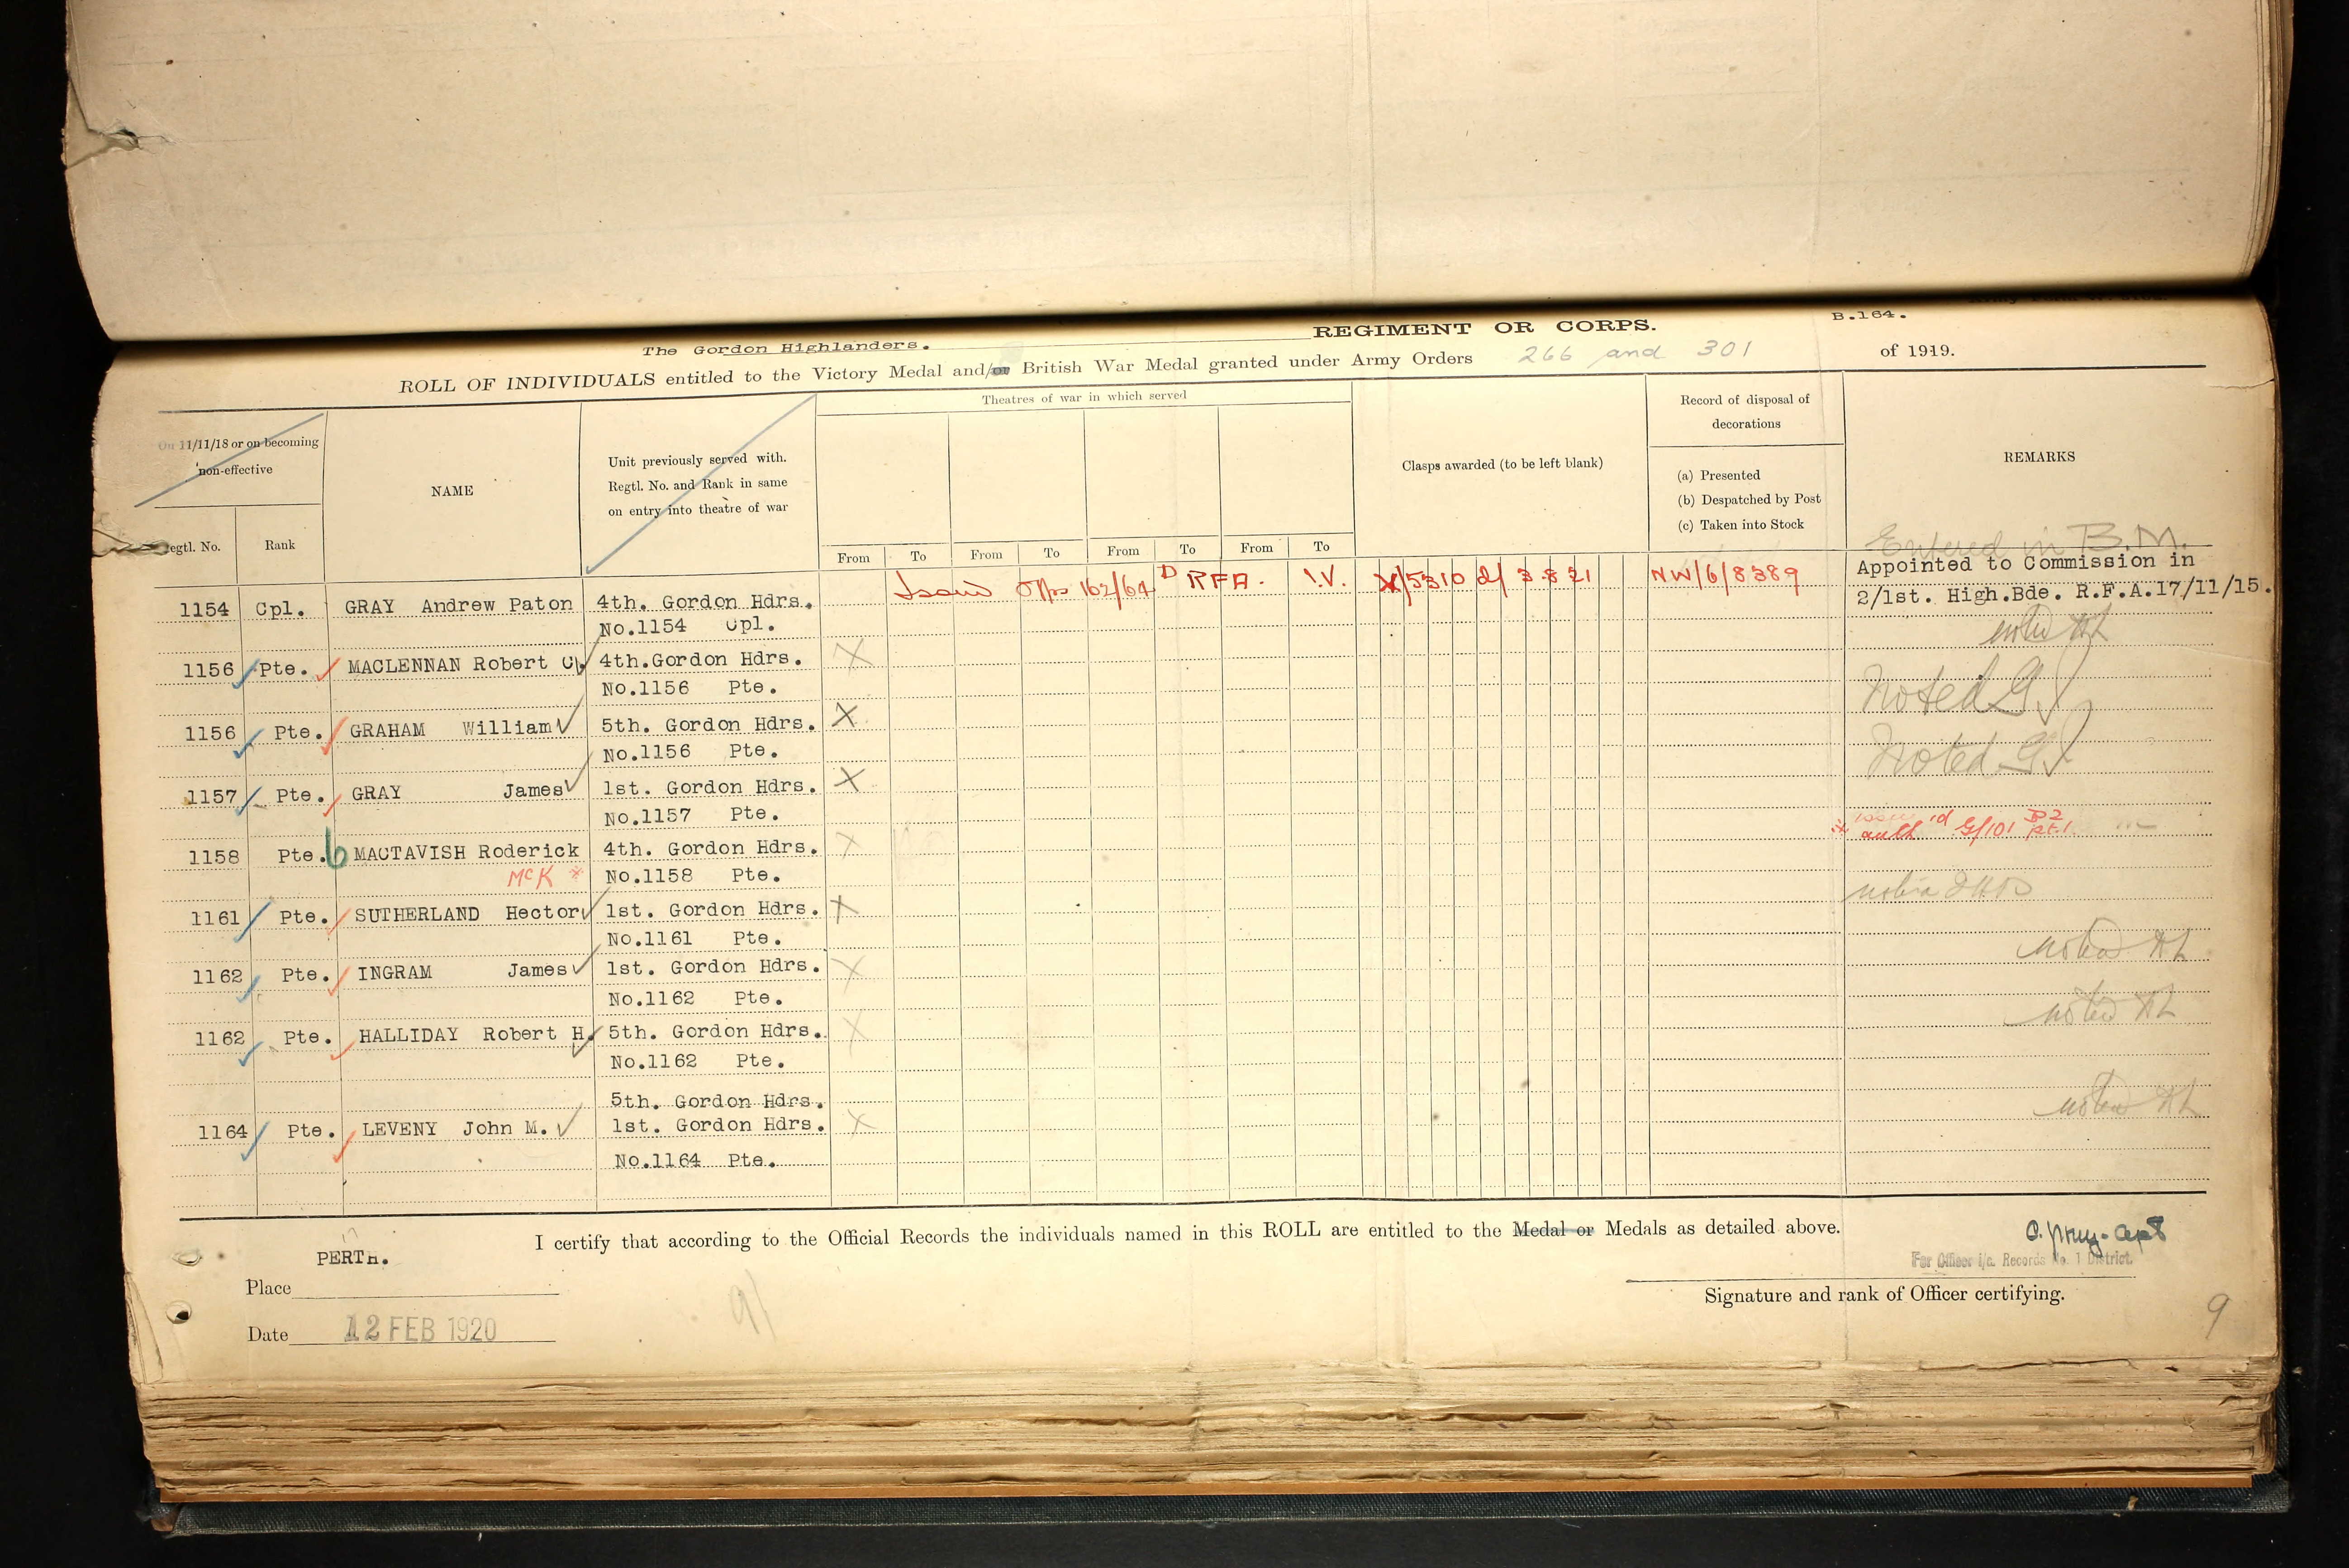 B.164.
The Gordon Highlanders. REGIMENT OR CORPS.
ROLL OF INDIVIDUALS entitled to the Victory Medal and/or British War Medal granted under Army Orders 266 and 301 of 1919.
On 11/11/18 or on becoming non-effective
Regtl. No.
Rank
NAME
Unit previously served with.
Regtl. No. and Rank in same
on entry into theatre of war
Theatres of war in which served
From To From To From To From To
Clasps awarded (to be left blank)
Record of disposal of
decorations
(a) Presented
(b) Despatched by Post
(c) Taken into Stock
REMARKS
Entered in B.M.
1154 Cpl. GRAY Andrew Paton 4th. Gordon Hdrs. Offs 162/64 D RFA. I.V. 5310 d/ 3.8.21 NW/6/8389 Appointed to Commission in
2/1st. High.Bde. R.F.A.17/11/15.
No.1154 Cpl.
1156 Pte. MACLENNAN Robert C. 4th.Gordon Hdrs. X noted
No.1156 Pte.
1156 Pte. GRAHAM William 5th. Gordon Hdrs. X Noted
No.1156 Pte.
1157 Pte. GRAY James 1st. Gordon Hdrs. X Noted
No.1157 Pte.
1158 Pte. MACTAVISH Roderick 4th. Gordon Hdrs. X auth G/101
McK * No.1158 Pte.
1161 Pte. SUTHERLAND Hector 1st. Gordon Hdrs. X
No.1161 Pte.
1162 Pte. INGRAM James 1st. Gordon Hdrs. X noted
No.1162 Pte.
1162 Pte. HALLIDAY Robert H. 5th. Gordon Hdrs. X noted
No.1162 Pte.
5th. Gordon Hdrs.
1164 Pte. LEVENY John M. 1st. Gordon Hdrs. X noted
No.1164 Pte.
I certify that according to the Official Records the individuals named in this ROLL are entitled to the Medal or Medals as detailed above.
PERTH.
Place
For Officer i/c. Records No. 1 District.
Signature and rank of Officer certifying.
Date 12 FEB 1920
91
9